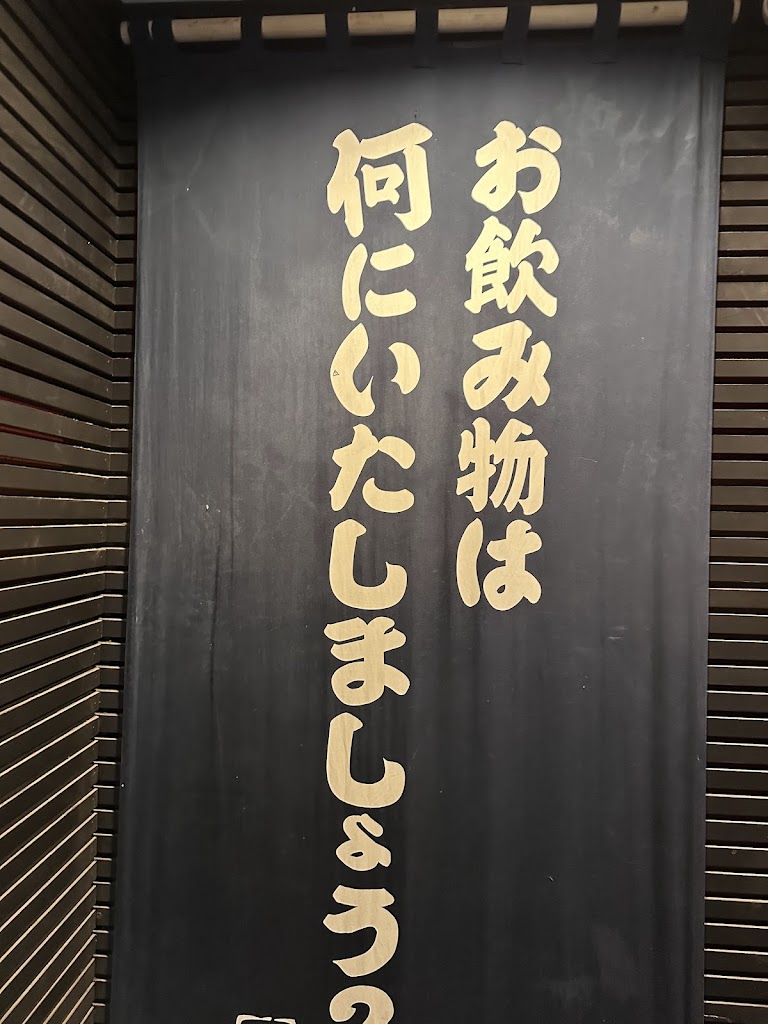 お飲み物は
何にいたしましょう?